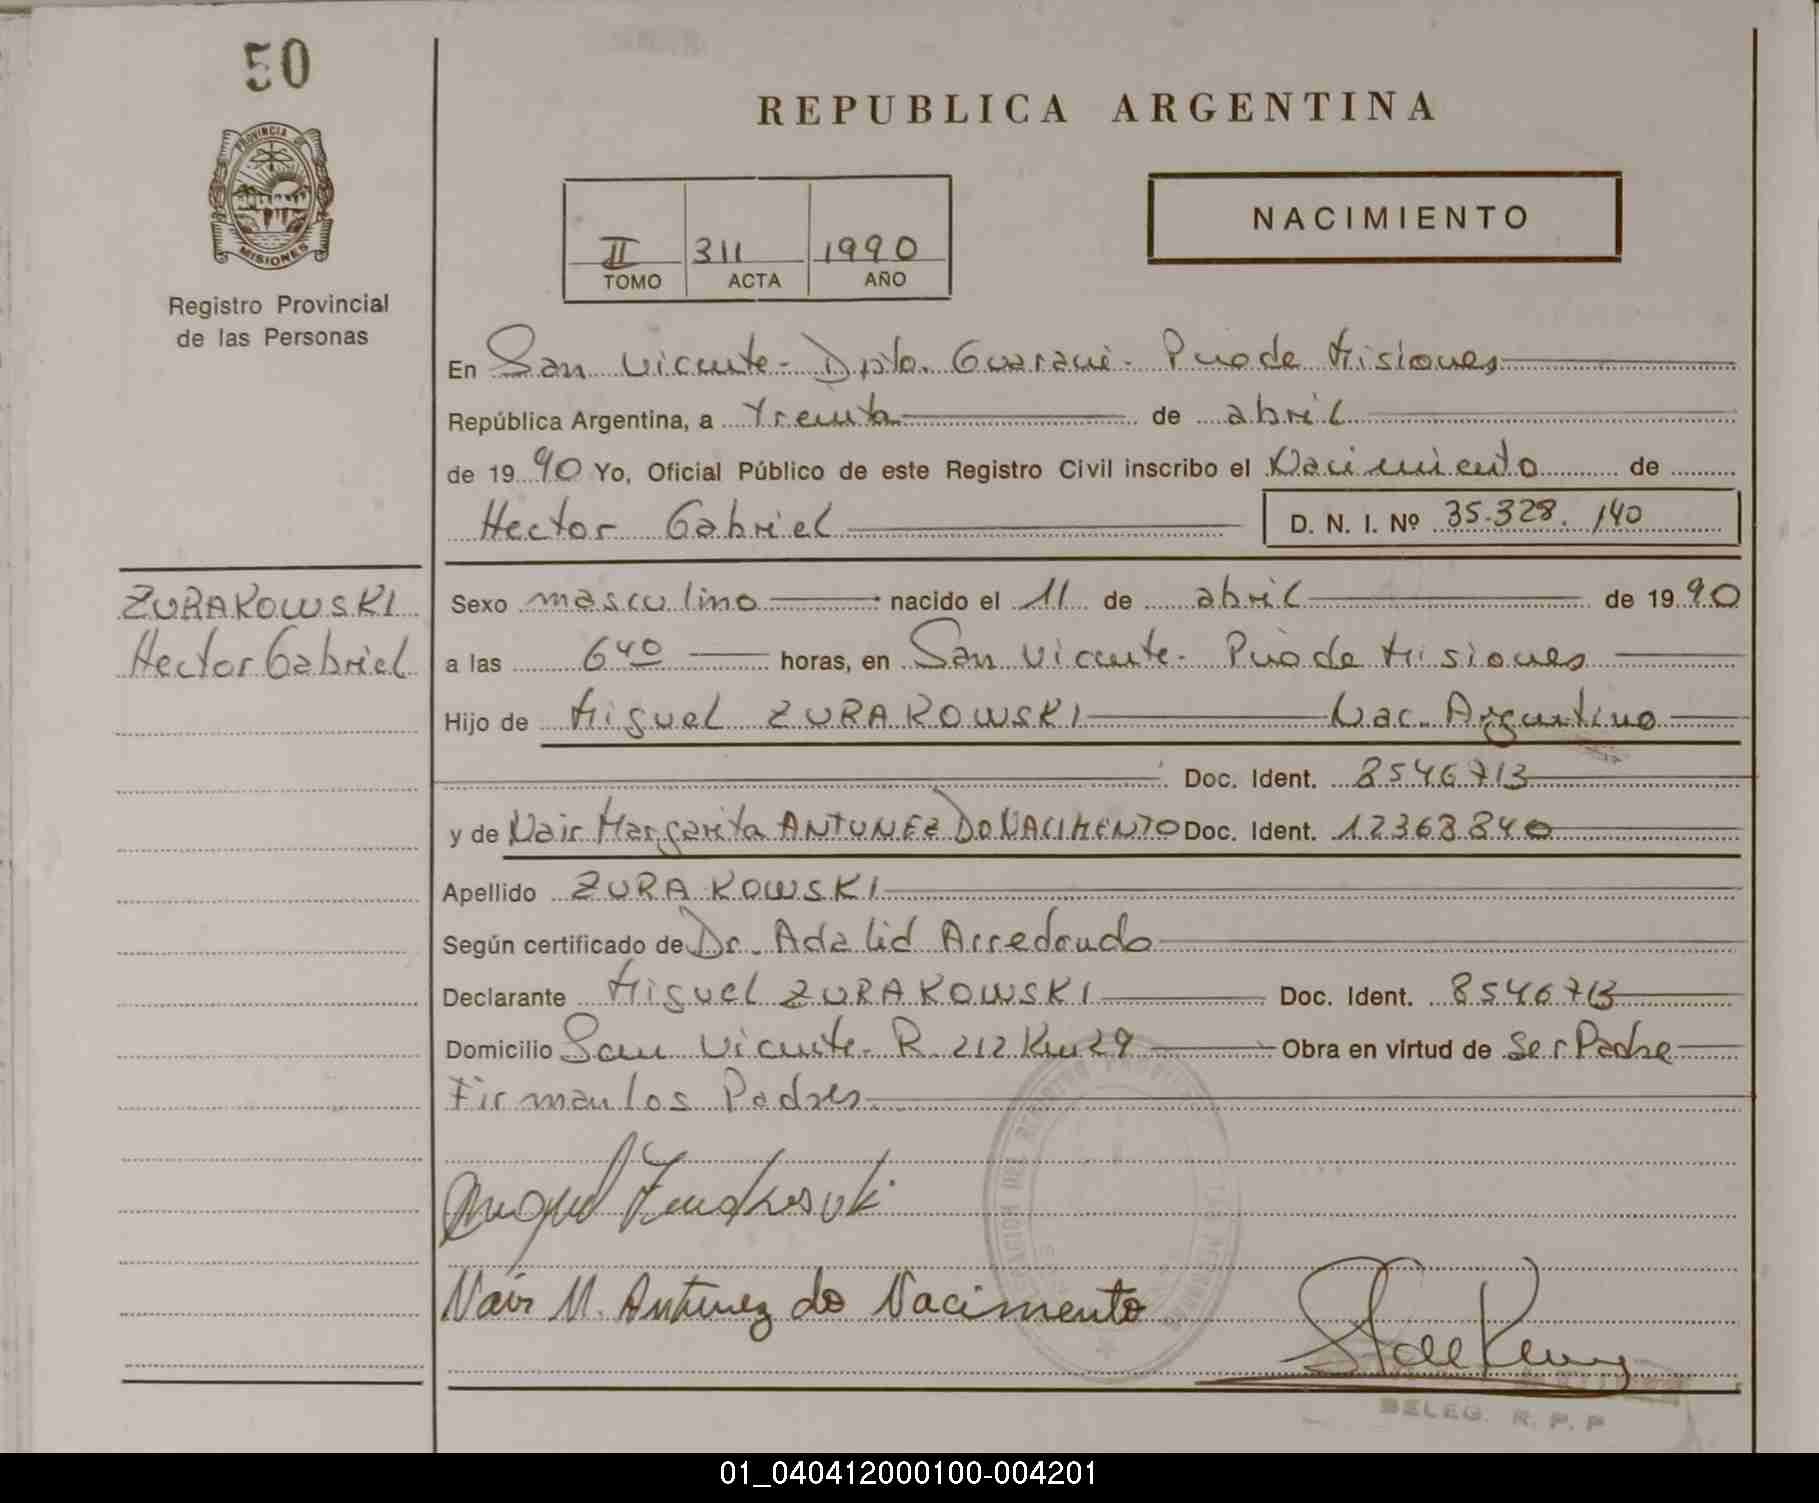 50
PROVINCIA DE
MISIONES
Registro Provincial
de las Personas
REPUBLICA ARGENTINA
II 311 1990
TOMO ACTA AÑO
NACIMIENTO
En San Vicente - Dpto. Guaraní - Pvia de Misiones
República Argentina, a treinta de abril
de 1990 Yo, Oficial Público de este Registro Civil inscribo el Nacimiento de
Hector Gabriel D. N. I. Nº 35.328.140
ZURAKOWSKI
Hector Gabriel
Sexo masculino nacido el 11 de abril de 1990
a las 6 40 horas, en San Vicente - Pvia de Misiones
Hijo de Miguel ZURAKOWSKI Nac. Argentino
Doc. Ident. 8546713
y de Nair Margarita ANTUNEZ DO NACIMENTO Doc. Ident. 12368840
Apellido ZURAKOWSKI
Según certificado de Dr. Adalid Arredondo
Declarante Miguel ZURAKOWSKI Doc. Ident. 8546713
Domicilio San Vicente - R. 212 Km 29 Obra en virtud de Ser Padre
Firman los Padres.
Miguel Zurakowski
Nair M. Antunez do Nacimento
DELEG. R. P. P
01_040412000100-004201